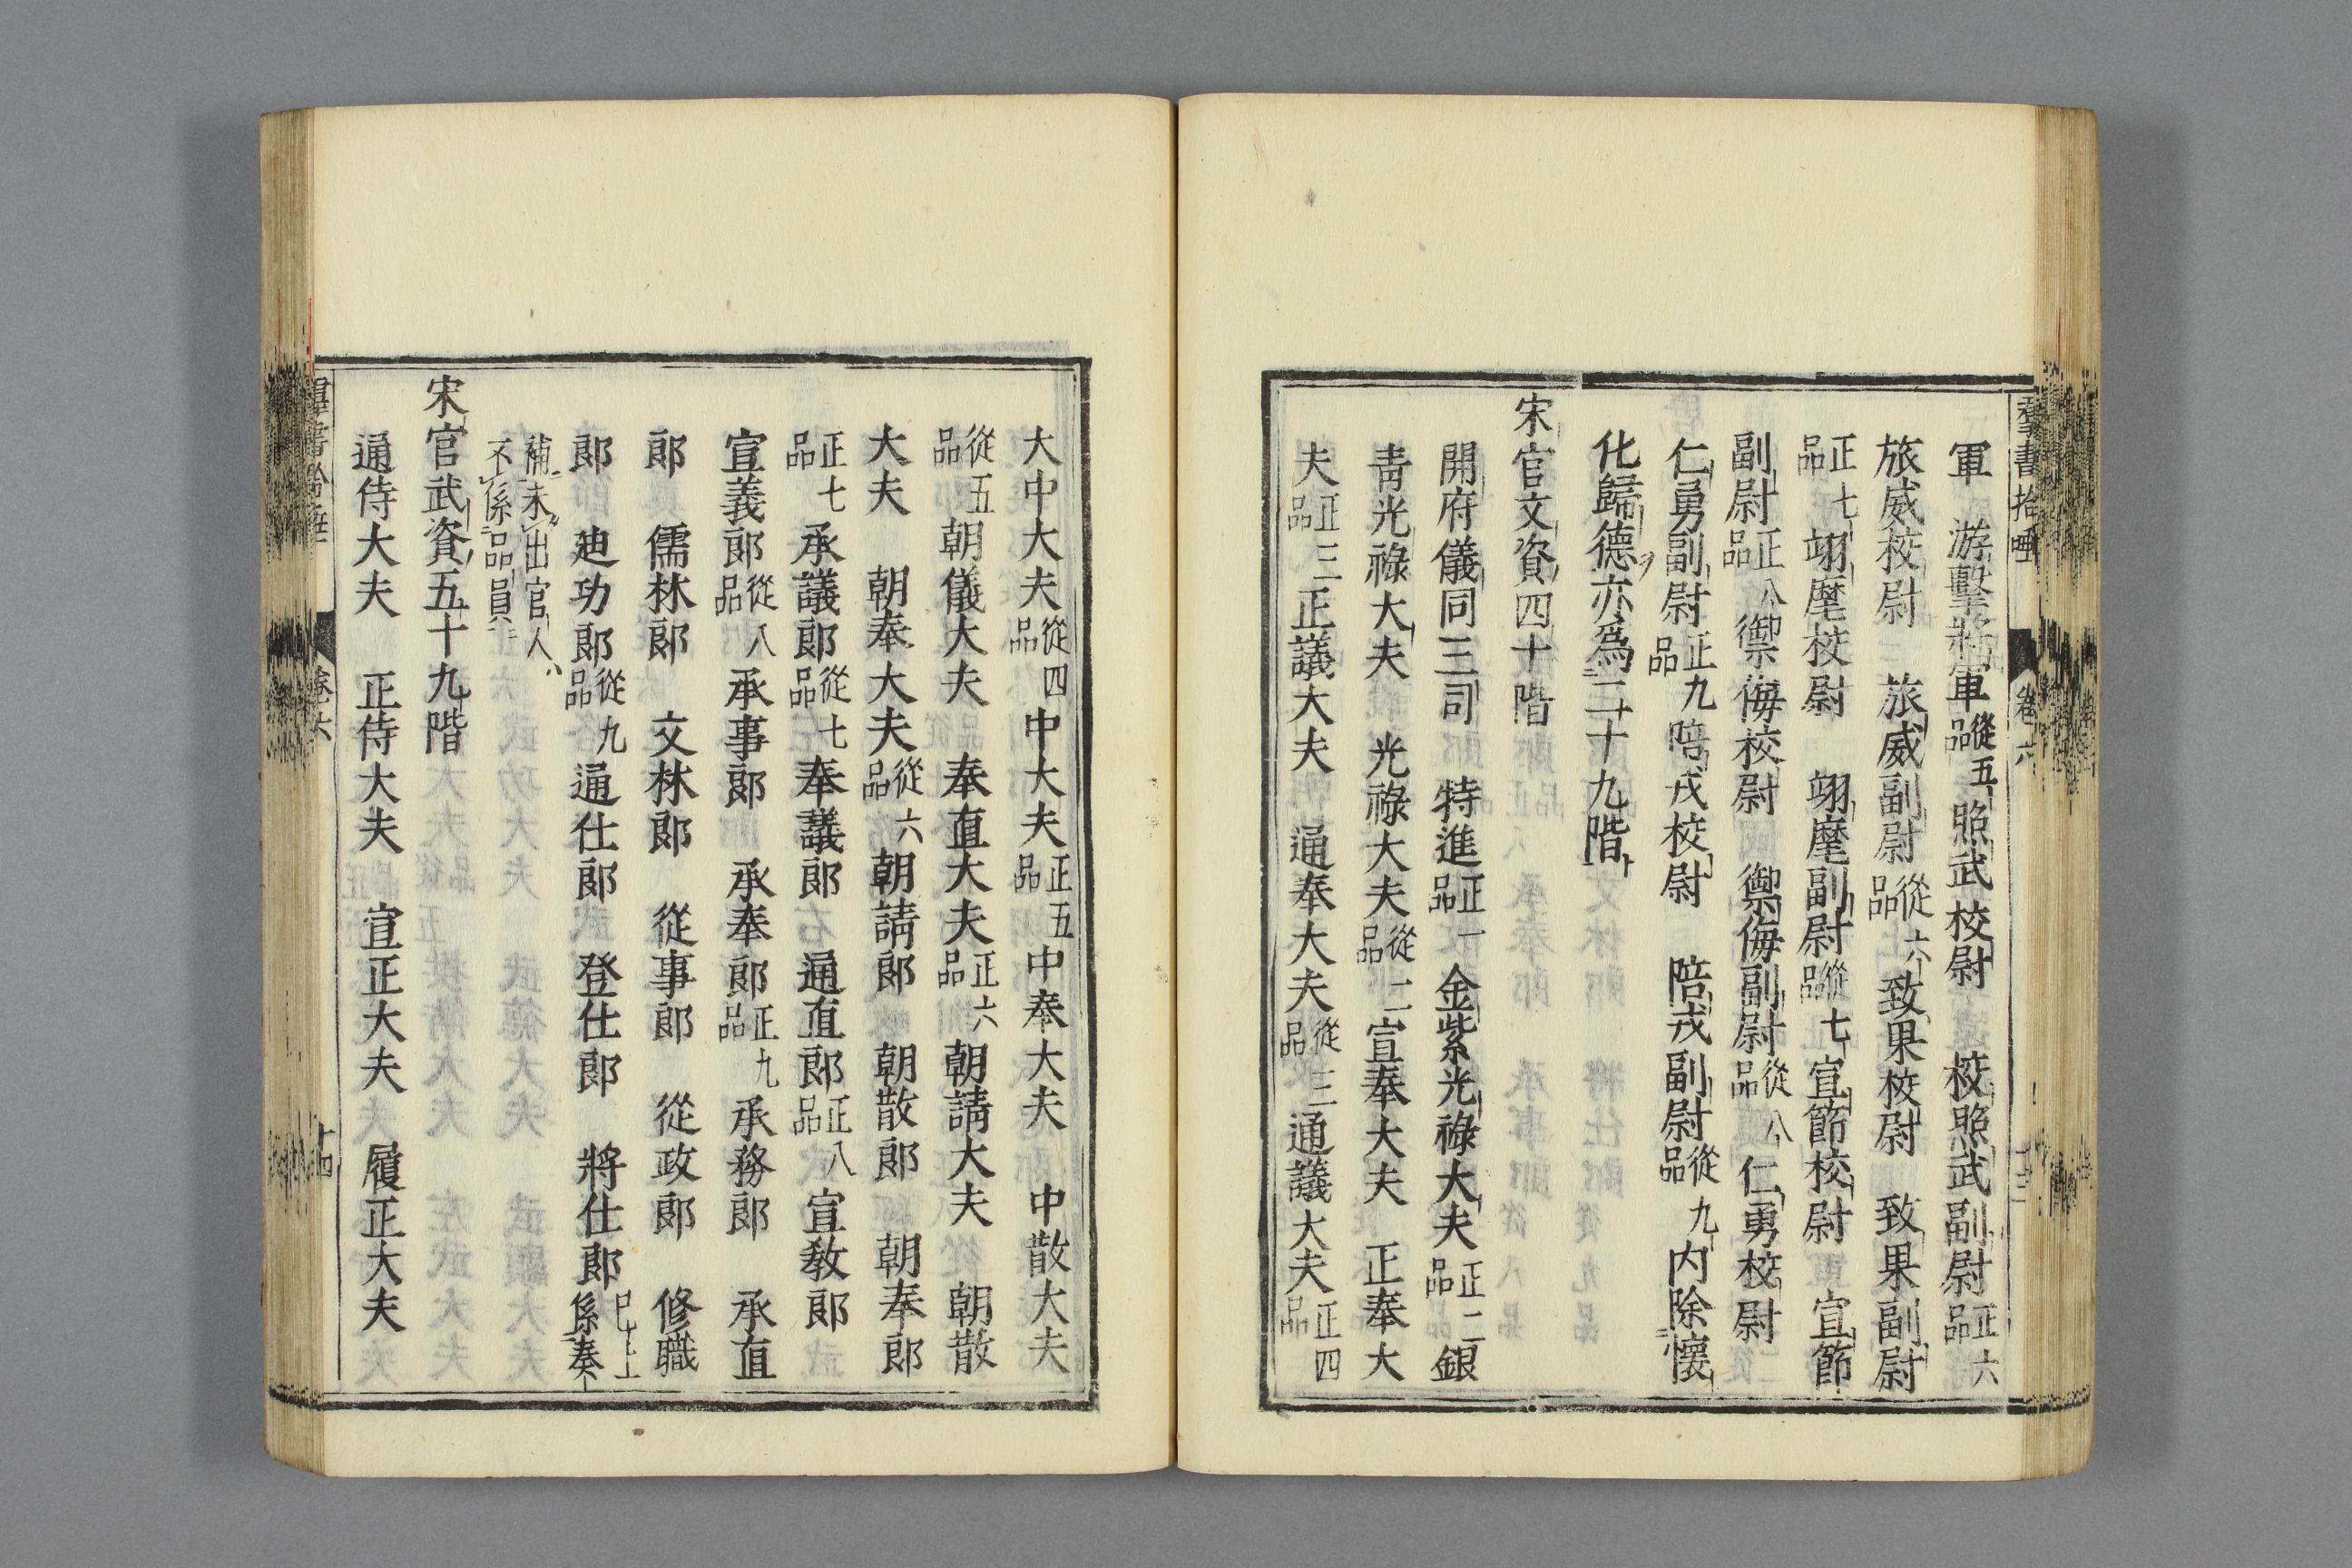 羣書拾唾 卷六 十三
軍 游擊將軍從五品 照武校尉 校照武副尉正六品
旅威校尉 旅威副尉從六品 致果校尉 致果副尉
正七品 翊麾校尉 翊麾副尉從七品 宣節校尉 宣節
副尉正八品 禦侮校尉 禦侮副尉從八品 仁勇校尉
仁勇副尉正九品 陪戎校尉 陪戎副尉從九品 内除懷
化歸德亦爲二十九階
宋官文資四十階
開府儀同三司 特進正一品 金紫光祿大夫正二品 銀
青光祿大夫 光祿大夫從二品 宣奉大夫 正奉大
夫正三品 正議大夫 通奉大夫從三品 通議大夫正四品
大中大夫從四品 中大夫正五品 中奉大夫 中散大夫
從五品 朝儀大夫 奉直大夫正六品 朝請大夫 朝散
大夫 朝奉大夫從六品 朝請郎 朝散郎 朝奉郎
正七品 承議郎從七品 奉議郎 通直郎正八品 宣教郎
宣義郎從八品 承事郎 承奉郎正九品 承務郎 承直
郎 儒林郎 文林郎 從事郎 從政郎 修職
郎 迪功郎從九品 通仕郎 登仕郎 將仕郎巳上係奏
補未出官人不係品員
宋官武資五十九階
通侍大夫 正侍大夫 宣正大夫 履正大夫
卷六 十四